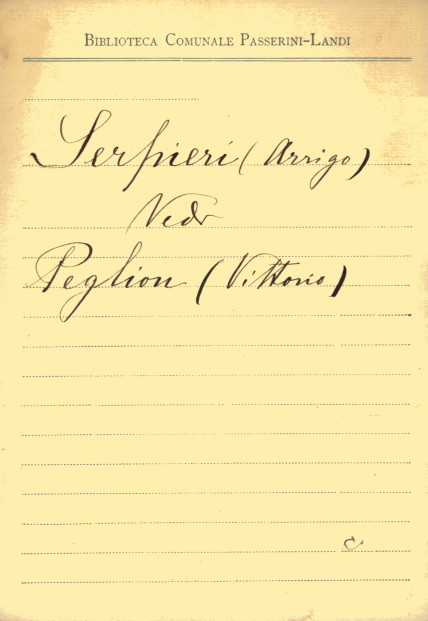 BIBLIOTECA COMUNALE PASSERINI-LANDI
Serpieri (Arrigo)
Vedi
Peglion (Vittorio)
c